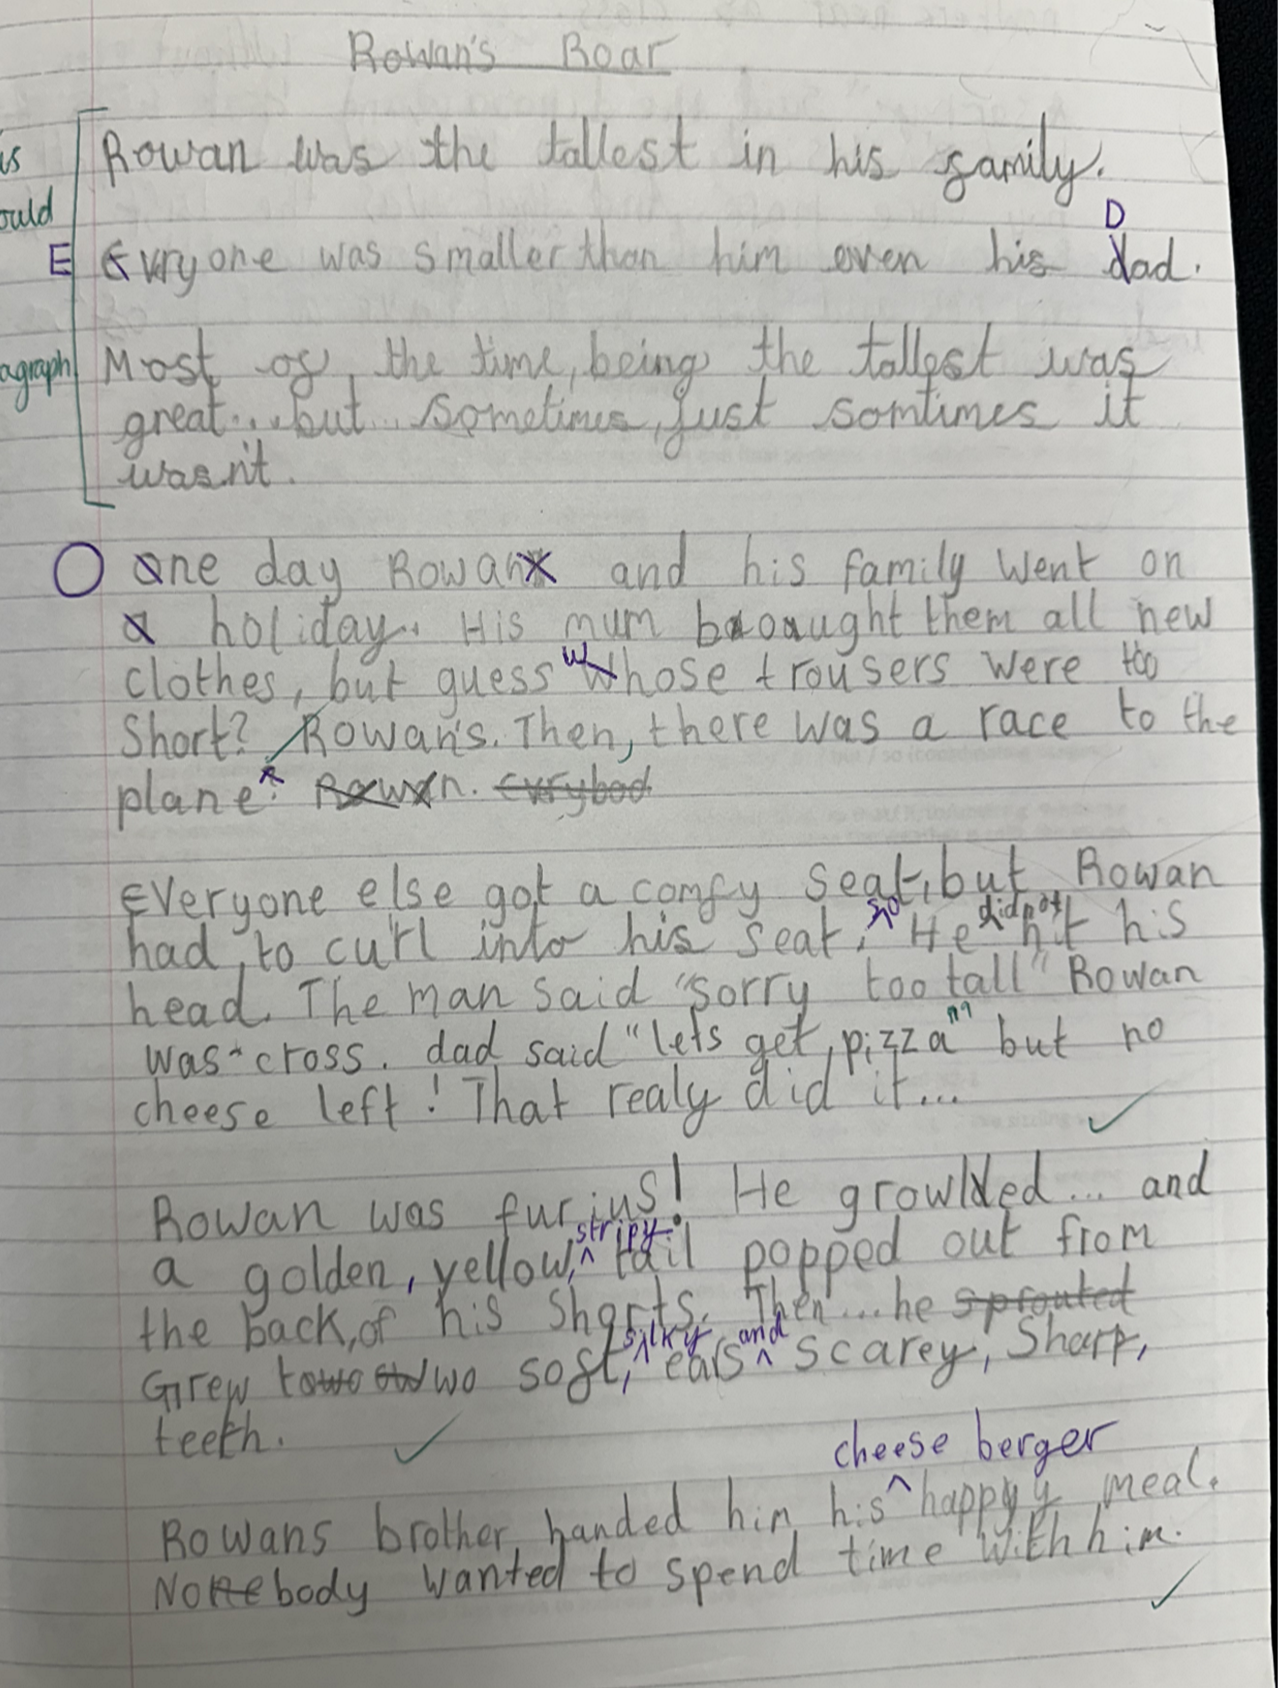 Rowan's Roar
Rowan was the tallest in his family.
D
E Evryone was smaller than him even his dad.
Most of the time, being the tallest was
agraph
great... but... sometimes, just somtimes it
wasn't.
O one day Rowan and his family went on
a holiday. His mum brought them all new
clothes, but guess whose trousers were too
Short? Rowan's. Then, there was a race to the
plane. Rowan. Evrybod
Everyone else got a comfy seat, but Rowan
so did not
had to curl into his seat. He hit his
head. The man said "sorry too tall" Rowan
was cross. dad said "lets get pizza" but no
cheese left! That realy did it...
Rowan was furius! He growled... and
stripy
a golden, yellow, tail popped out from
the back of his Shorts. Then... he sprouted
silky and
Grew two soft, ears scarey, Sharp,
teeth.
cheese berger
Rowans brother handed him his happy meal.
Nobody wanted to spend time with him.